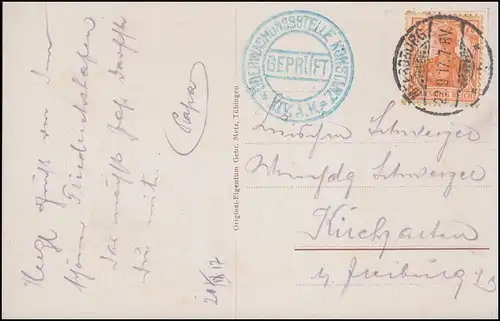 Herzl. Grüße von dem
schönen Friedrichshafen
Das nächste Jahr darfst
Du mit.
Papa
20/IX 17
Original-Eigentum Gebr. Metz, Tübingen.
ÜBERWACHUNGSSTELLE KONSTANZ
GEPRÜFT
XIV. A.K.
DEUTSCHES REICH
17. 7-8V.
Schwerzer
Schwerzer
Kirchzarten
b/ Freiburg i/B